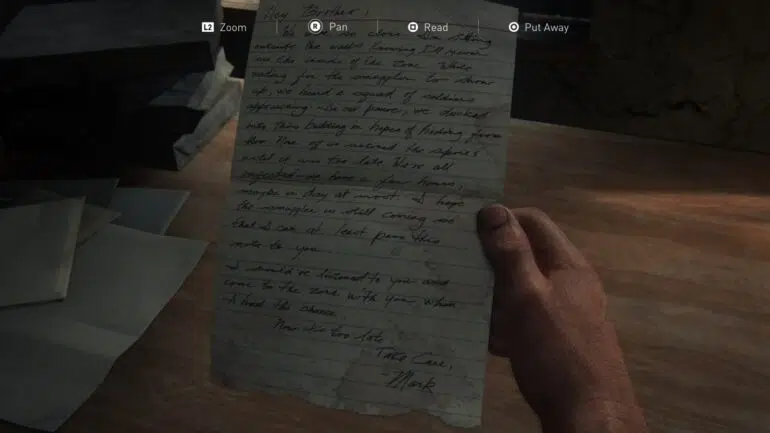 L2 Zoom R Pan Read Put Away
Hey Brother,
We were so close. I'm sitting
outside the walls knowing I'll never
see the inside of the zone. While
waiting for the smuggler to show
up, we heard a squad of soldiers
approaching. In our panic, we ducked
into this building in hopes of hiding from
them. None of us noticed the spores
until it was too late. We're all
infected - we have a few hours,
maybe a day at most. I hope
the smuggler is still coming so
that I can at least pass this
note to you.
I should've listened to you and
come to the zone with you when
I had the chance.
Now it's too late.
Take Care,
-Mark